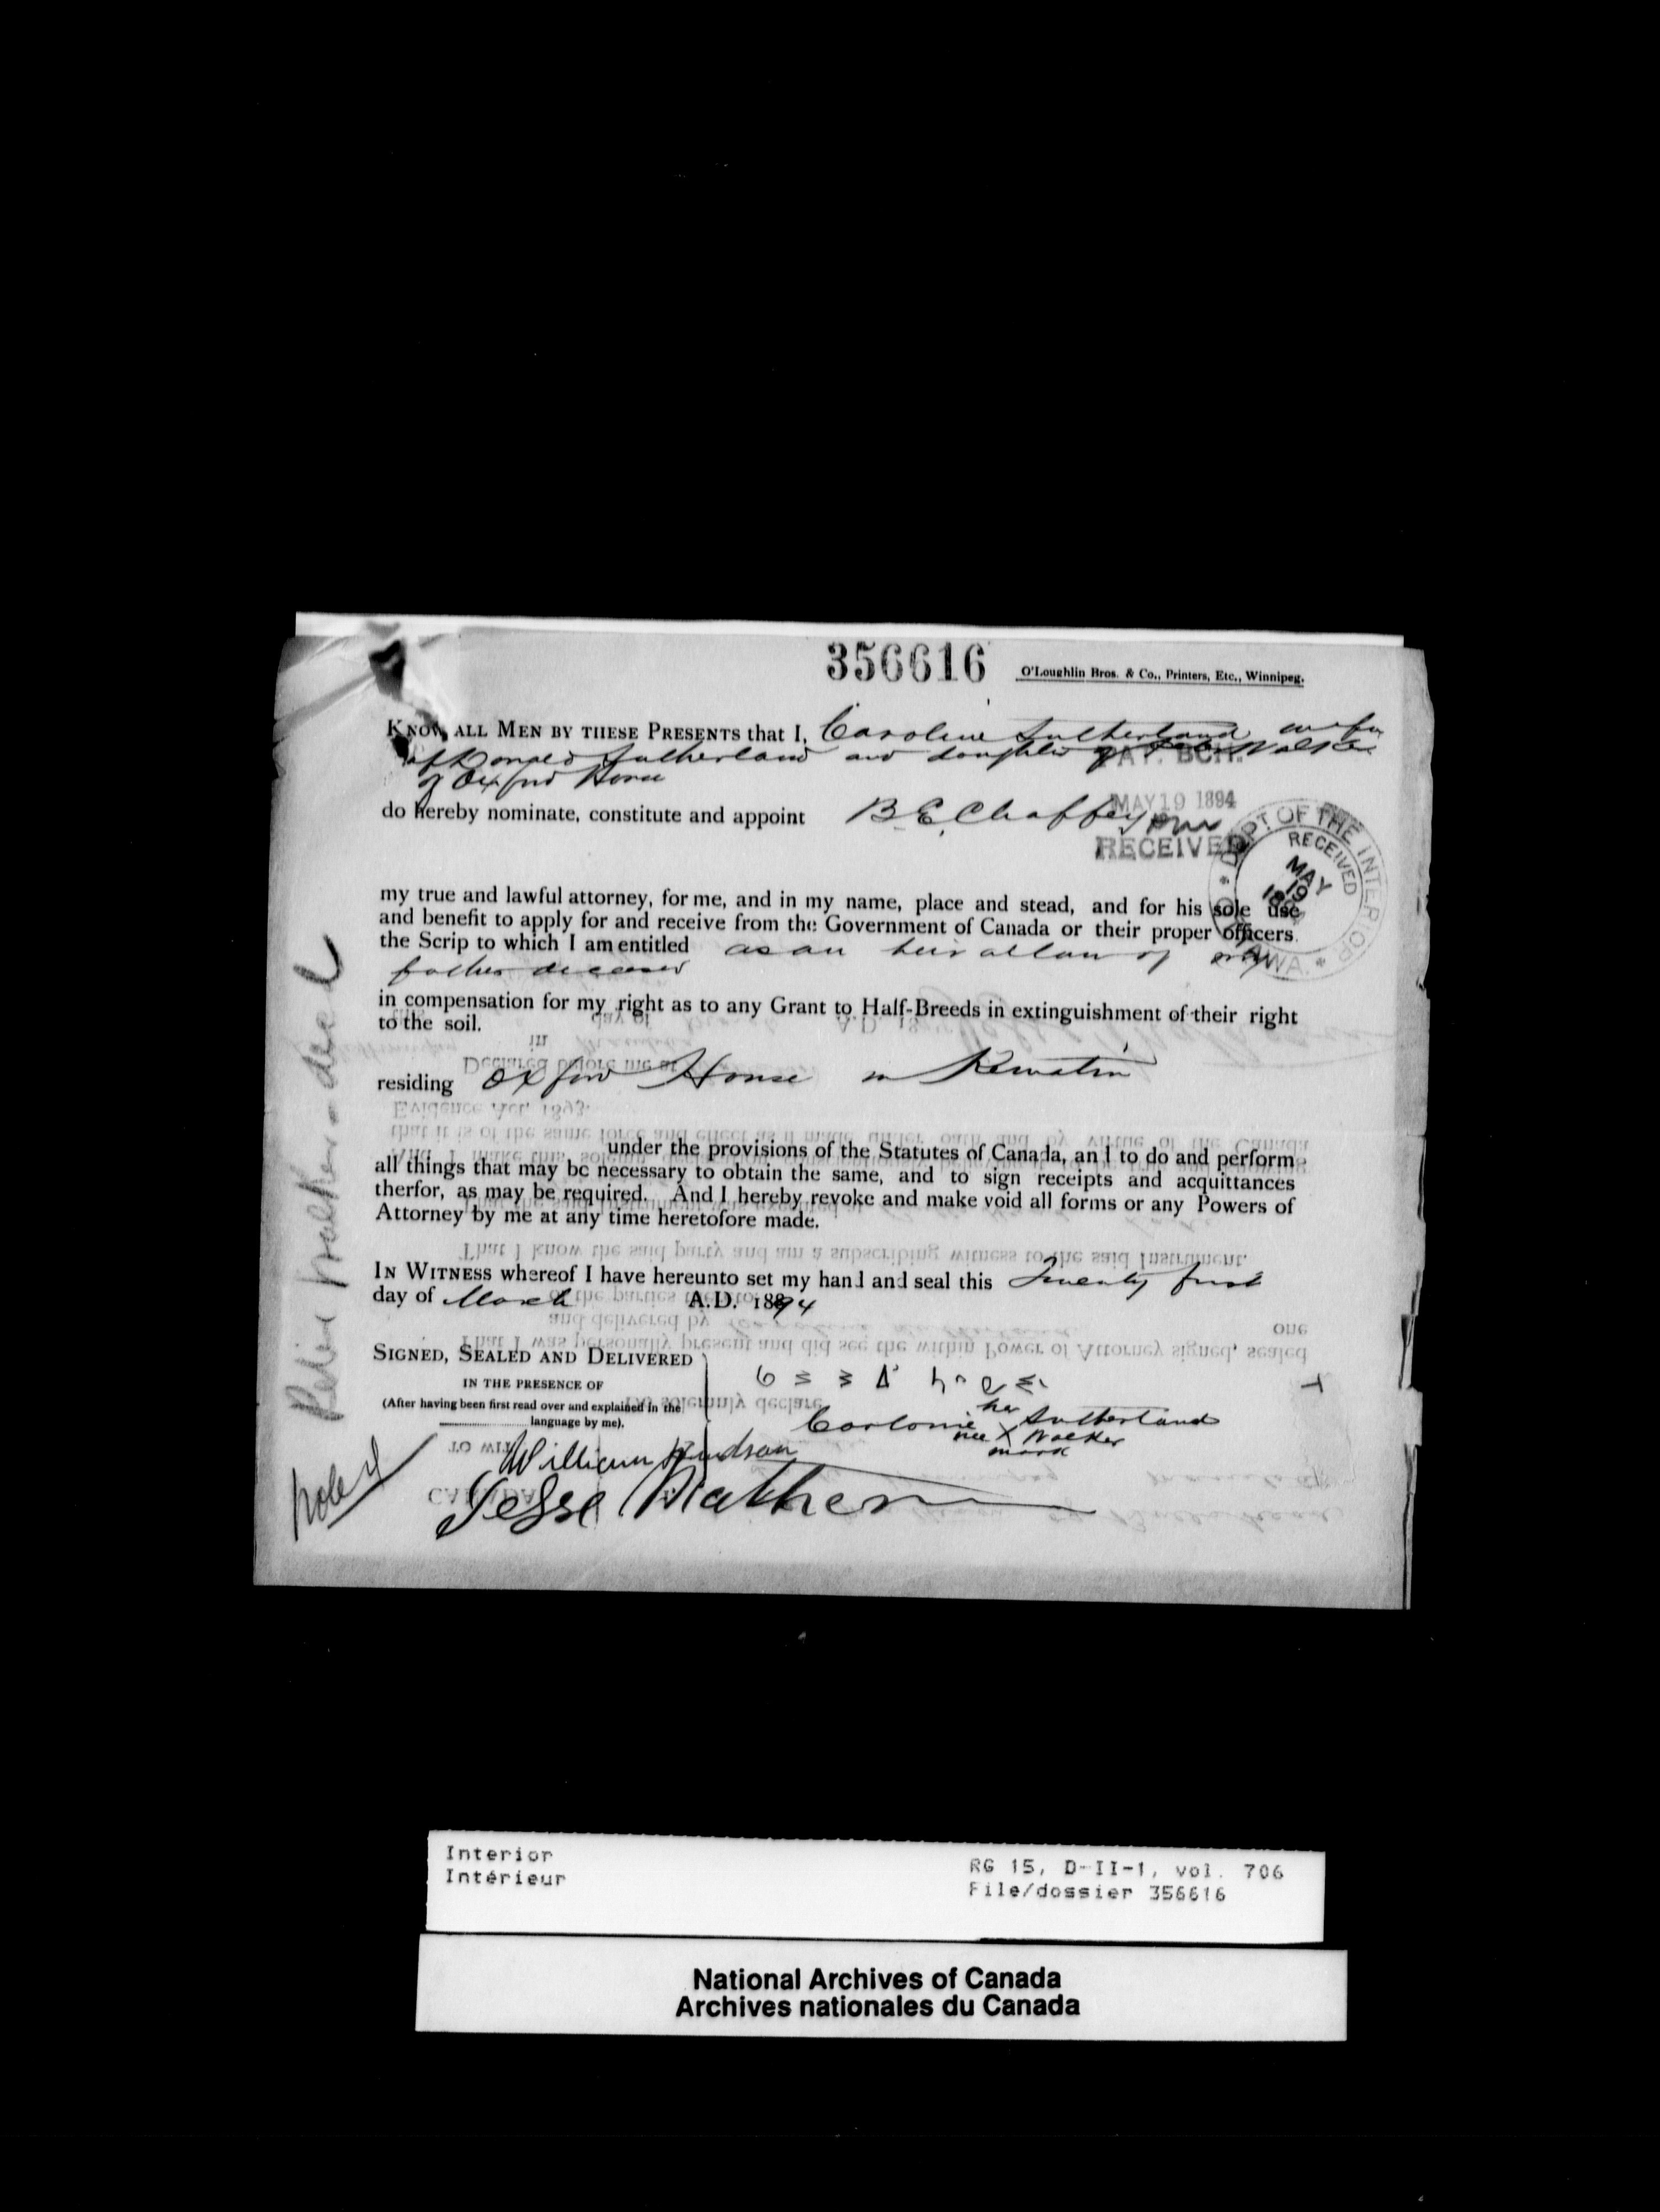 356616
O'Loughlin Bros. & Co., Printers, Etc., Winnipeg.
KNOW ALL MEN BY THESE PRESENTS that I, Caroline Sutherland wife
of Donald Sutherland and daughter of Peter Walker
of Oxford House
PAT. BCH.
MAY 19 1894
RECEIVED
do hereby nominate, constitute and appoint B E Chaffey
DEPT OF THE INTERIOR
RECEIVED
MAY
19
1894
OTTAWA
my true and lawful attorney, for me, and in my name, place and stead, and for his sole use
and benefit to apply for and receive from the Government of Canada or their proper officers
the Scrip to which I am entitled as an heir at law of my
father deceased
in compensation for my right as to any Grant to Half-Breeds in extinguishment of their right
to the soil.
residing Oxford House in Kewatin
under the provisions of the Statutes of Canada, and to do and perform
all things that may be necessary to obtain the same, and to sign receipts and acquittances
therfor, as may be required. And I hereby revoke and make void all forms or any Powers of
Attorney by me at any time heretofore made.
IN WITNESS whereof I have hereunto set my hand and seal this Twenty first
day of March A.D. 1894
SIGNED, SEALED AND DELIVERED
IN THE PRESENCE OF
(After having been first read over and explained in the
language by me).
her
Carloine X Sutherland
nee Walker
mark
William Hudson
Jesse Mathers
Peter Walker - dec'd
Interior
Intérieur
RG 15, D-II-1, vol. 706
File/dossier 356616
National Archives of Canada
Archives nationales du Canada